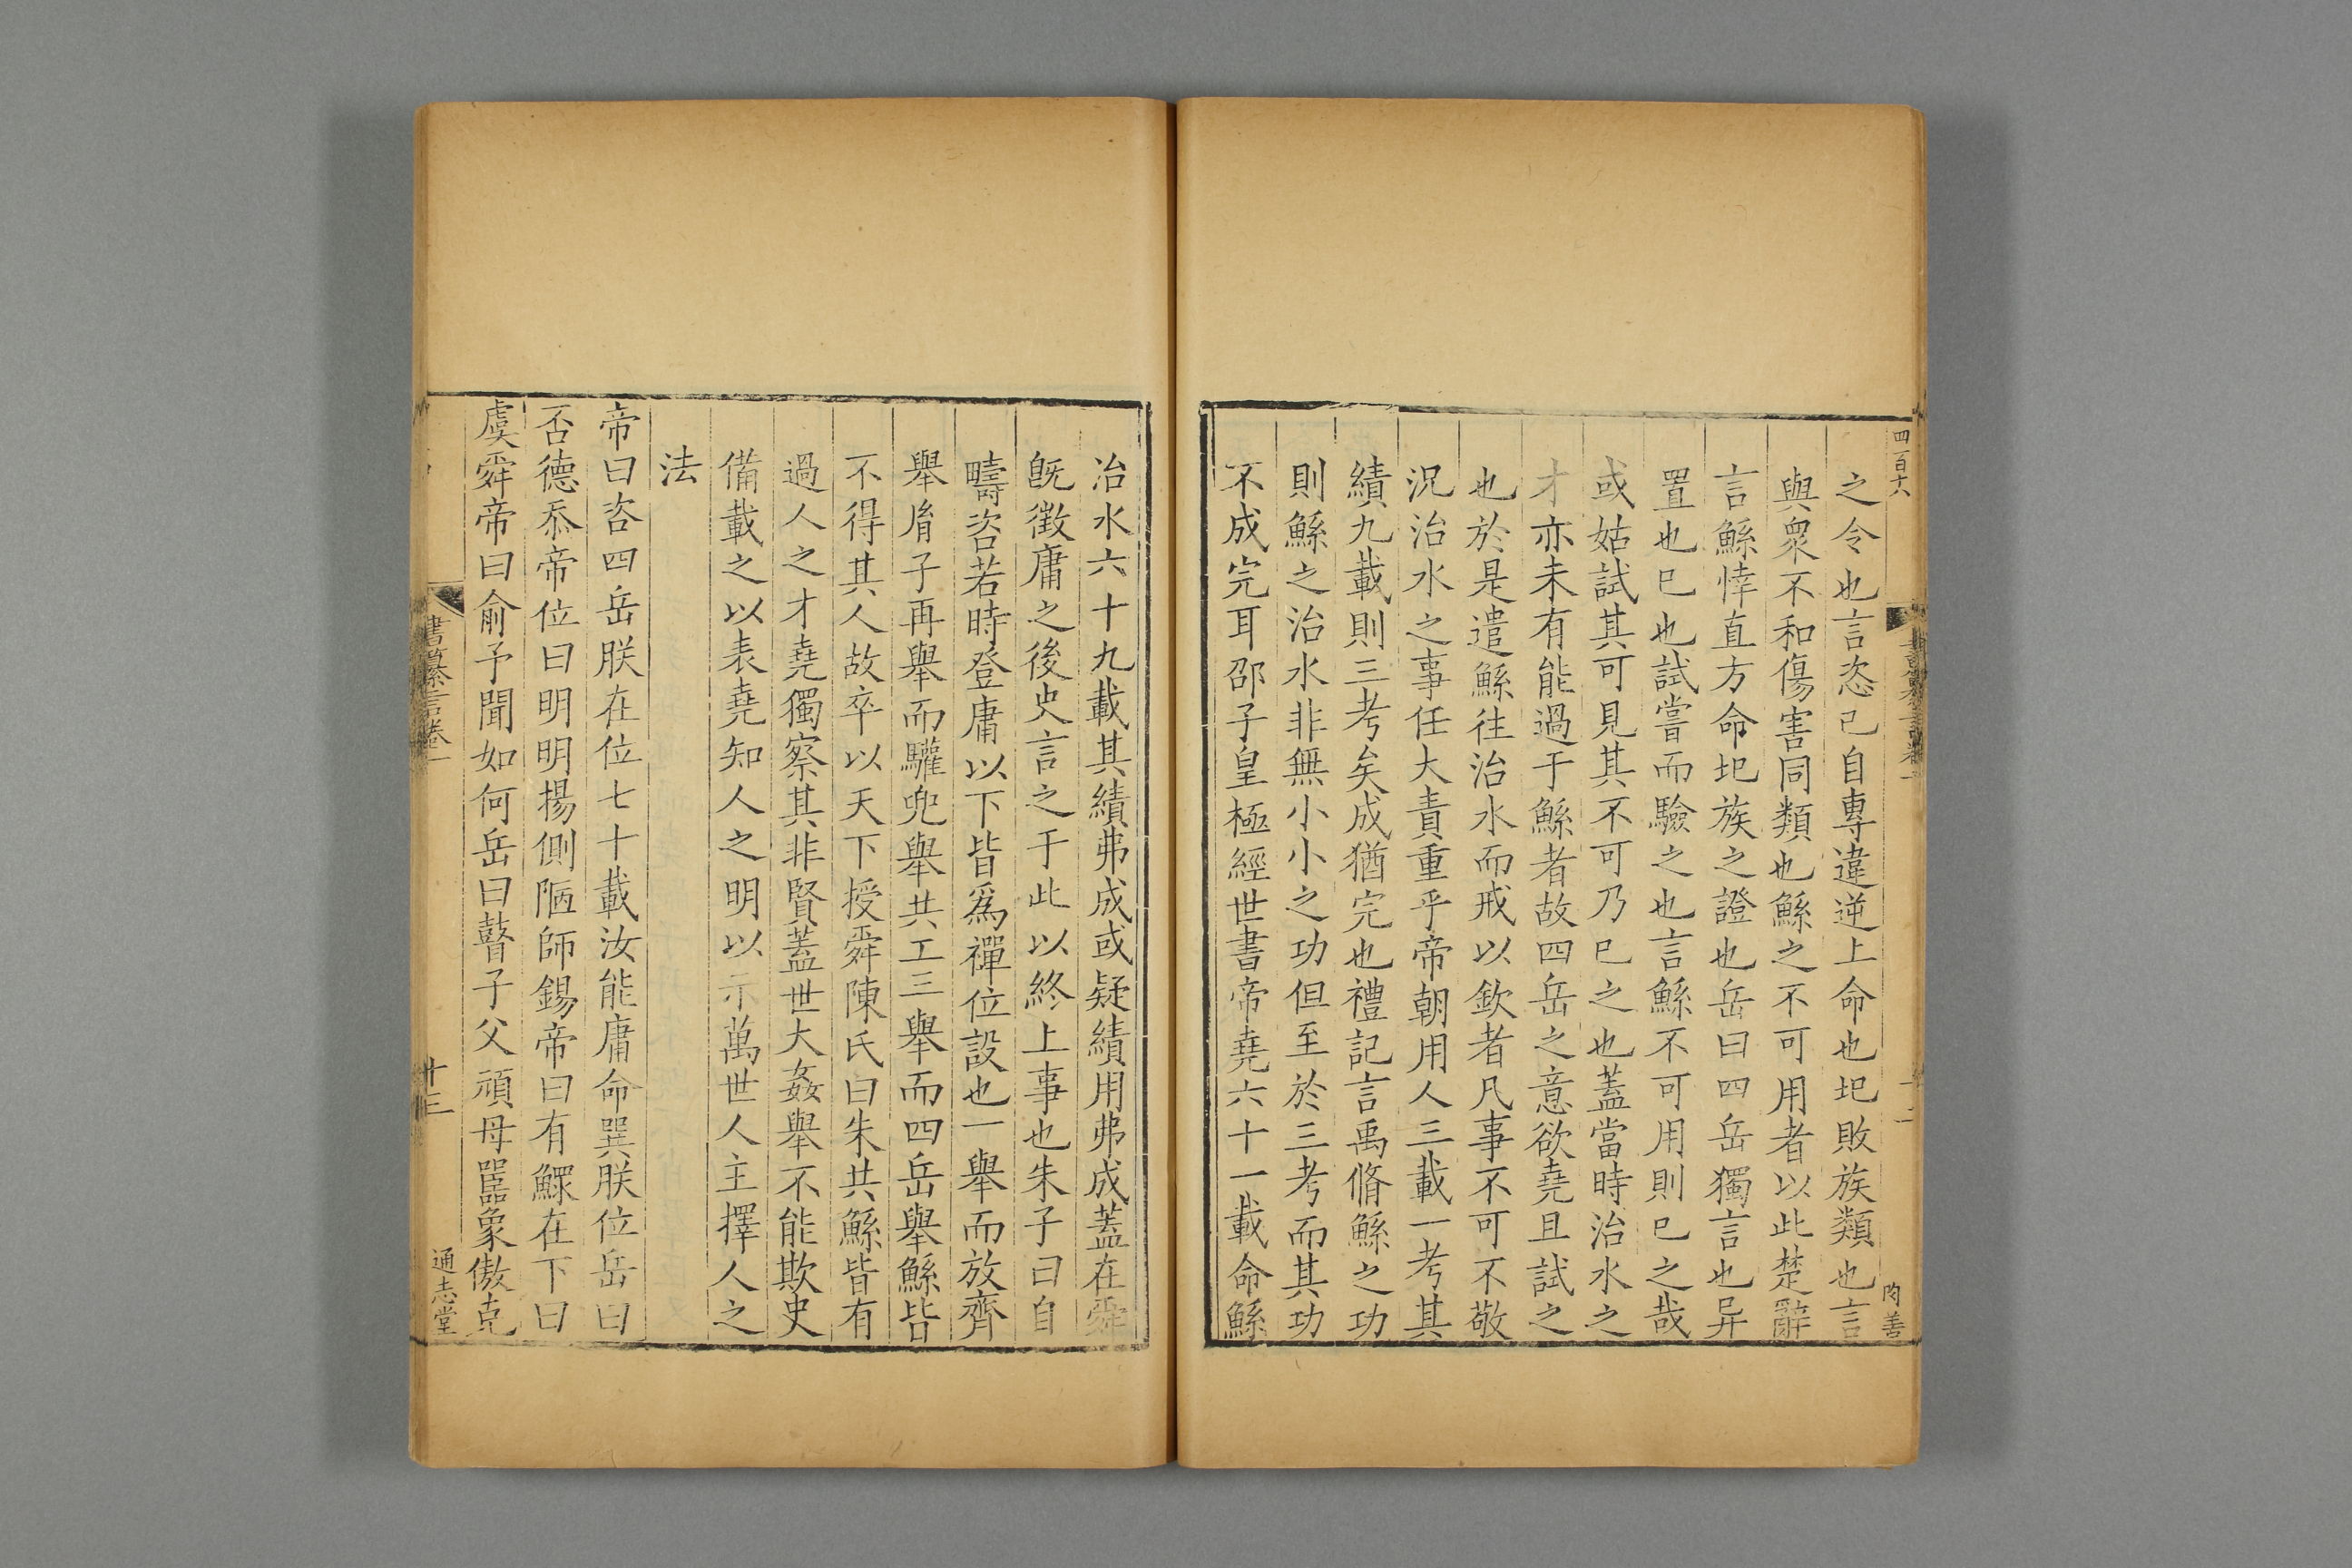 四百十六
之令也言恣己自專違逆上命也圯敗族類也言
與衆不和傷害同類也鯀之不可用者以此楚辭
言鯀悻直方命圯族之證也岳曰四岳獨言也异
置也巳也試嘗而驗之也言鯀不可用則巳之哉
或姑試其可見其不可乃巳之也蓋當時治水之
才亦未有能過于鯀者故四岳之意欲堯且試之
也於是遣鯀往治水而戒以欽者凡事不可不敬
況治水之事任大責重乎帝朝用人三載一考其
績九載則三考矣成猶完也禮記言禹脩鯀之功
則鯀之治水非無小小之功但至於三考而其功
不成完耳邵子皇極經世書帝堯六十一載命鯀
治水六十九載其績弗成或疑績用弗成蓋在舜
旣徵庸之後史言之于此以終上事也朱子曰自
疇咨若時登庸以下皆爲禪位設也一舉而放齊
舉胤子再舉而驩兜舉共工三舉而四岳舉鯀皆
不得其人故卒以天下授舜陳氏曰朱共鯀皆有
過人之才堯獨察其非賢蓋世大姦舉不能欺史
備載之以表堯知人之明以示萬世人主擇人之
法
帝曰咨四岳朕在位七十載汝能庸命巽朕位岳曰
否德忝帝位曰明明揚側陋師錫帝曰有鰥在下曰
虞舜帝曰俞予聞如何岳曰瞽子父頑母嚚象傲克
書纂言卷一
十三
通志堂